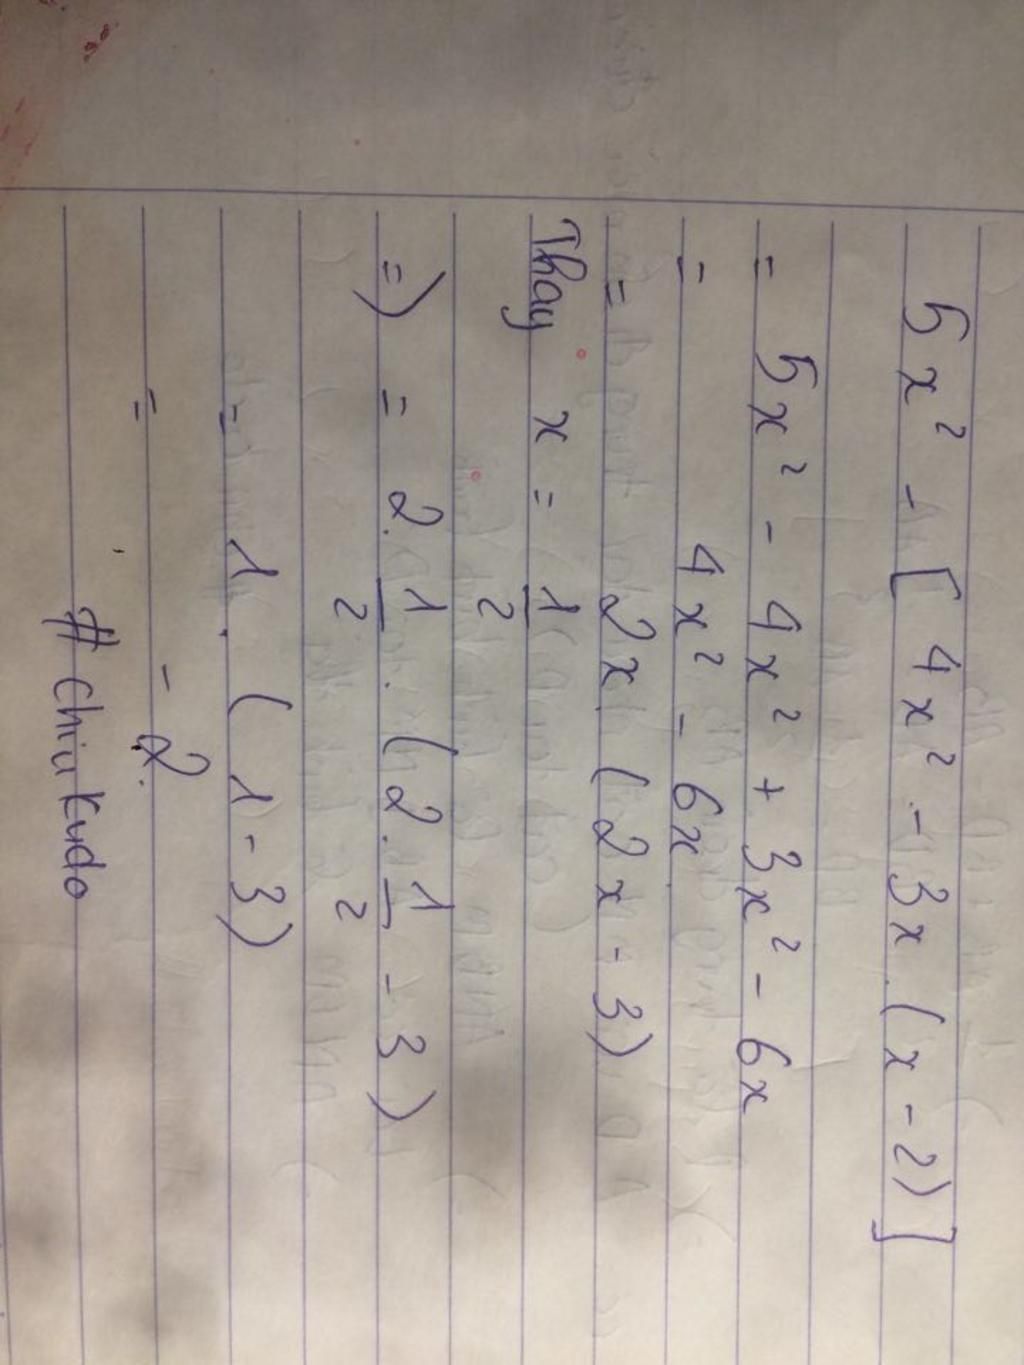 5x² - [4x² - 3x.(x - 2)]
= 5x² - 4x² + 3x² - 6x
= 4x² - 6x
= 2x (2x - 3)
Thay x = 1/2
=) = 2. 1/2 . (2. 1/2 - 3)
= 1. (1 - 3)
= - 2.
# Chiu Kudo